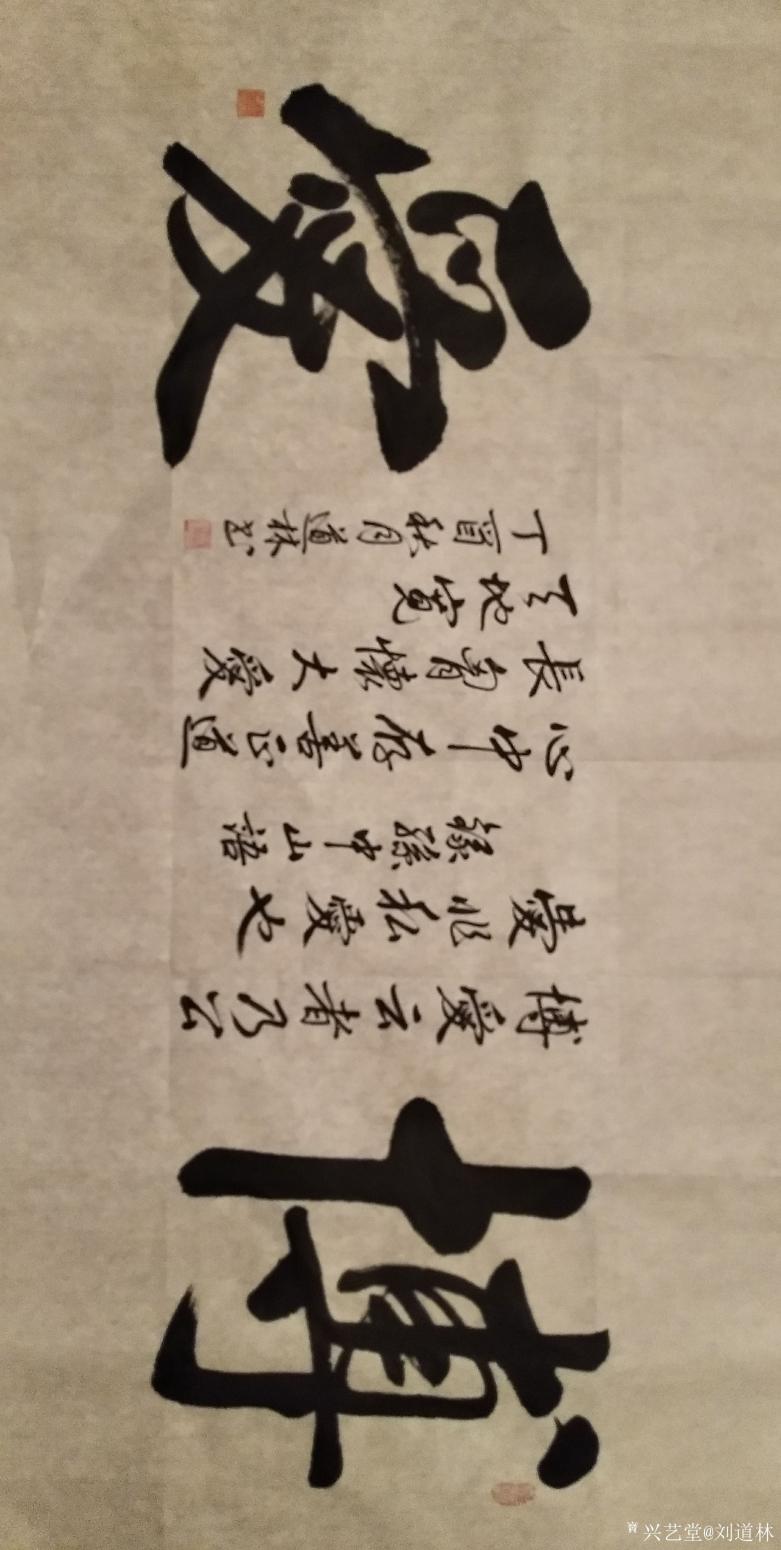 博愛
博愛云者乃公
愛非私愛也
錄孫中山語
心中存善正道
長胷懷大愛
天地寬
丁酉秋月道林书
兴艺堂@刘道林